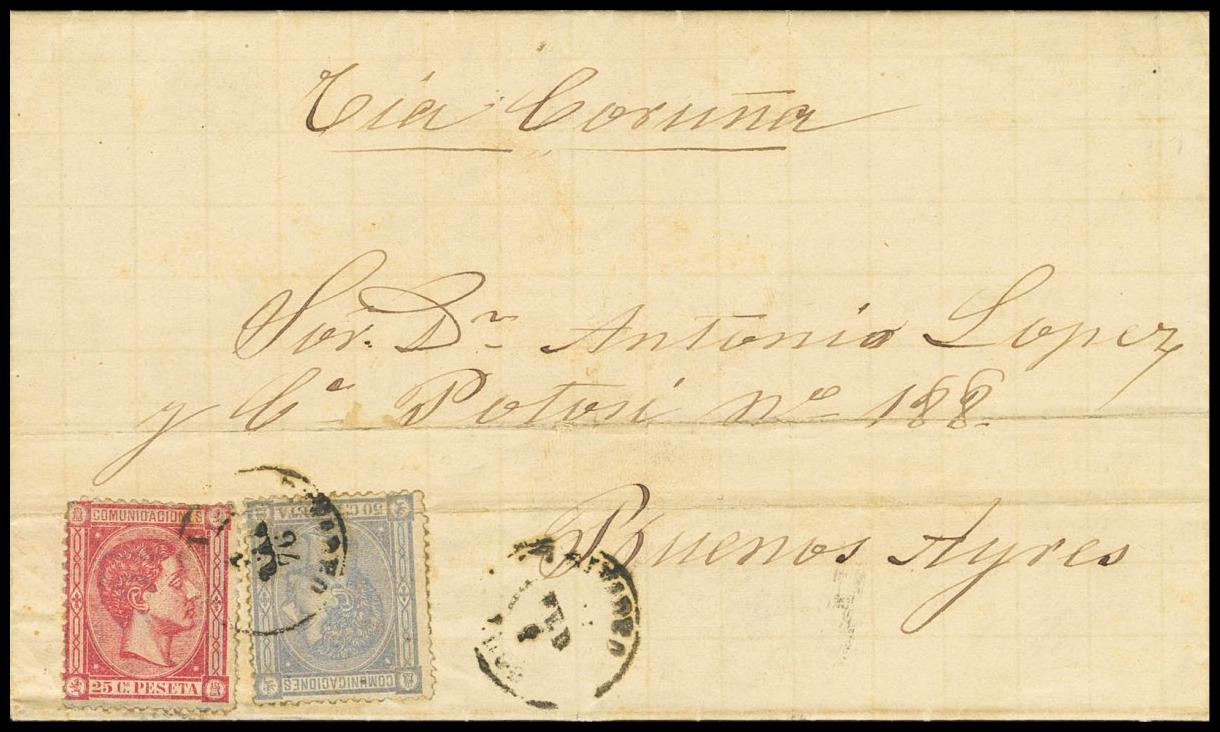 Via Coruña
Sor. Dn Antonio Lopez
y Ca Potosi No 188.
Buenos Ayres
COMUNICACIONES
25 Cs PESETA
50 CS PESETA
COMUNICACIONES
76